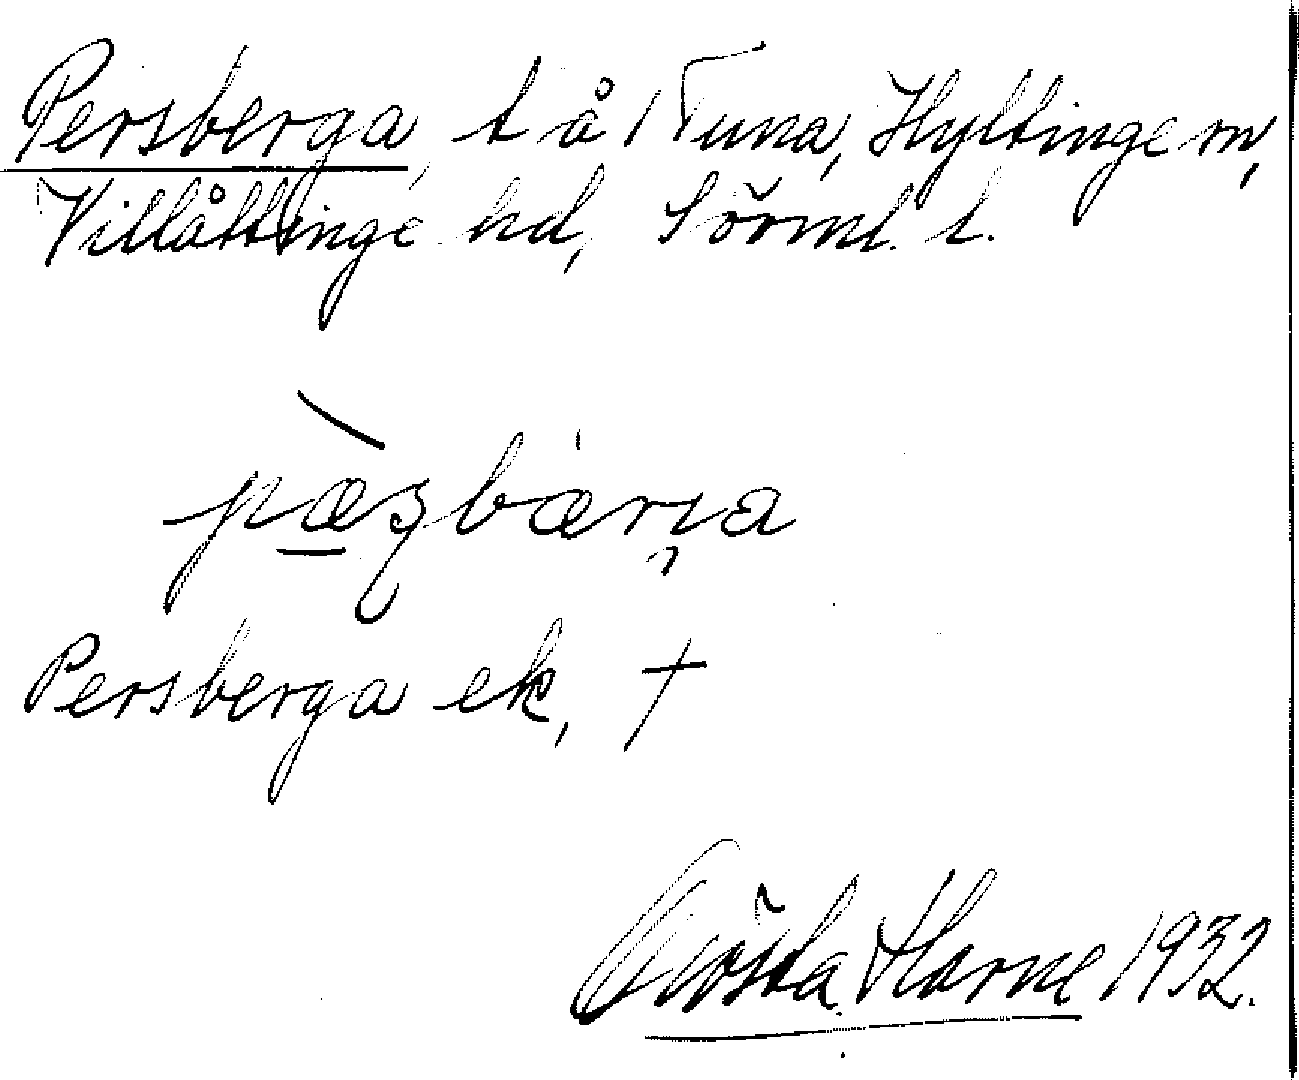 Persberga, t å /Tuna, Hyltinge sn,
Villåttinge hd, Sörml. l.
pæʂbærɪa
Persberga ek, †
Gösta Harne 1932.